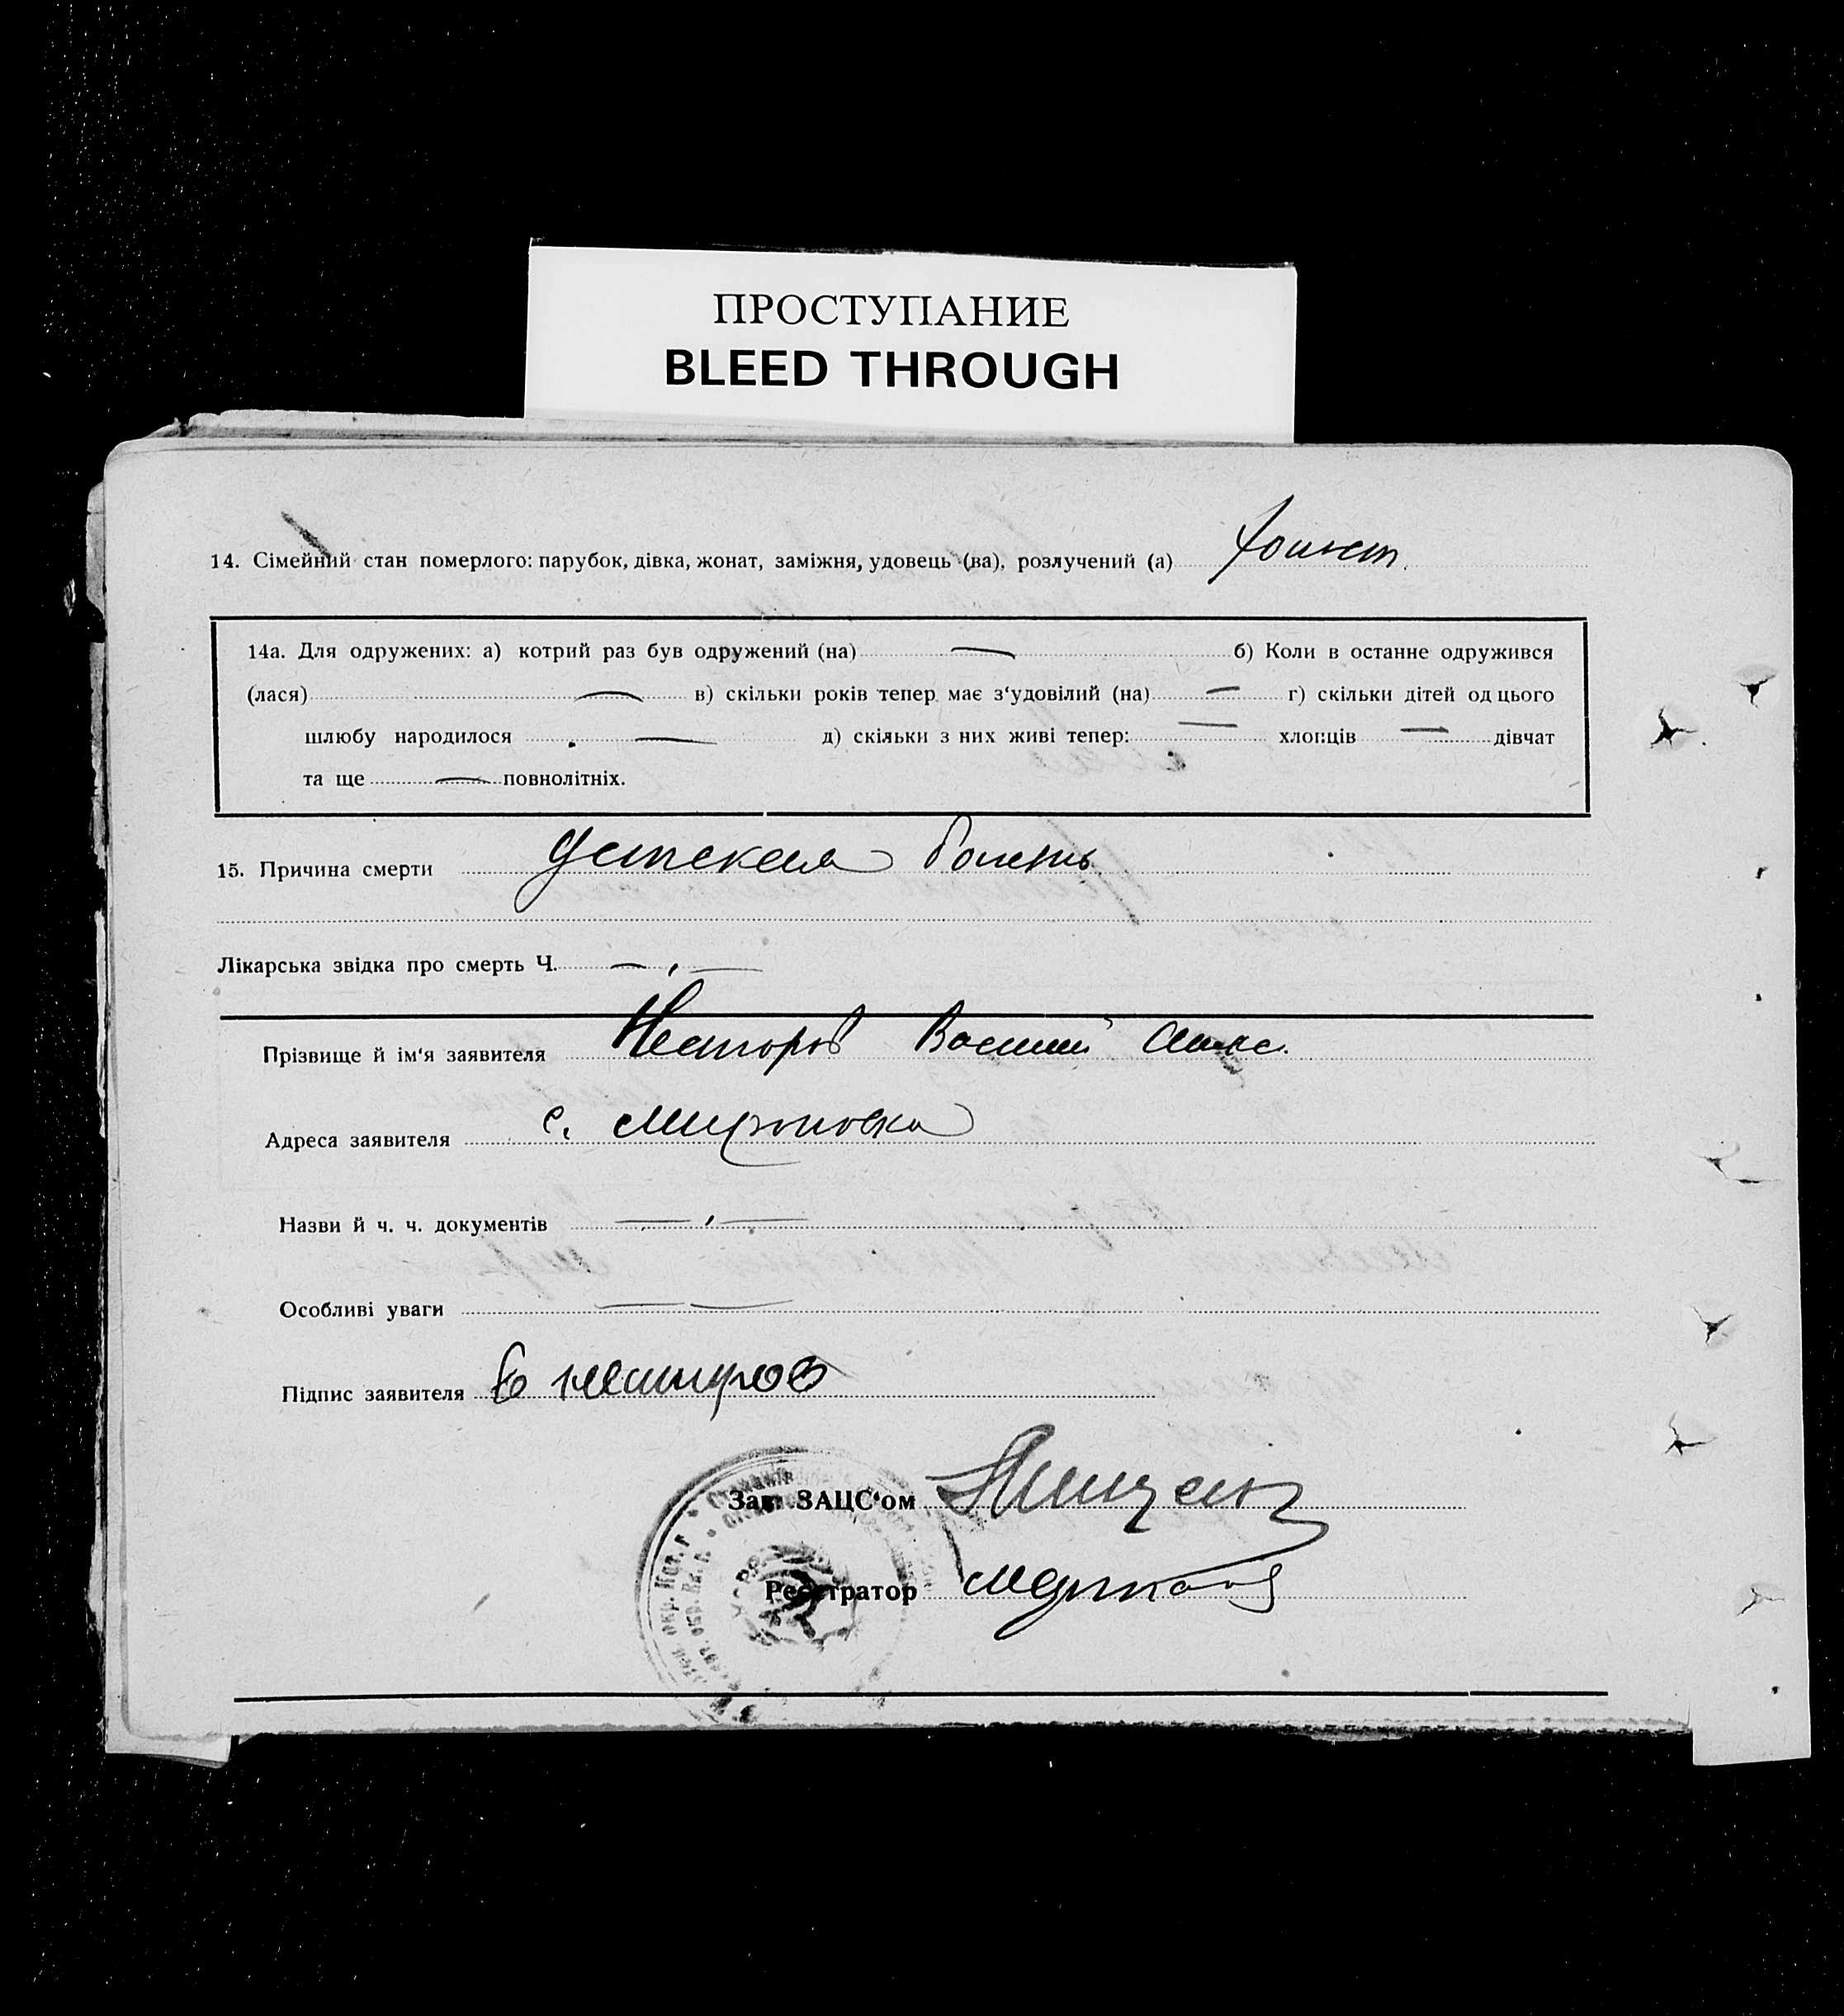 ПРОСТУПАНИЕ
BLEED THROUGH
14. Сімейний стан померлого: парубок, дівка, жонат, заміжня, удовець (ва), розлучений (а) Холост.
14а. Для одружених: а) котрий раз був одружений (на) — б) Коли в останне одружився
(лася) — в) скільки років тепер має з‘удовілий (на) — г) скільки дітей од цього
шлюбу народилося — д) скільки з них живі тепер: — хлопців — дівчат
та ще — повнолітніх.
15. Причина смерти детская болезнь
Лікарська звідка про смерть Ч. — „ —
Прізвище й ім‘я заявителя Несторов Василий
Адреса заявителя с. Мироновка
Назви й ч. ч. документів — „ —
Особливі уваги — —
Підпис заявителя В Несторов
Зав. ЗАЦС‘ом
Реєстратор